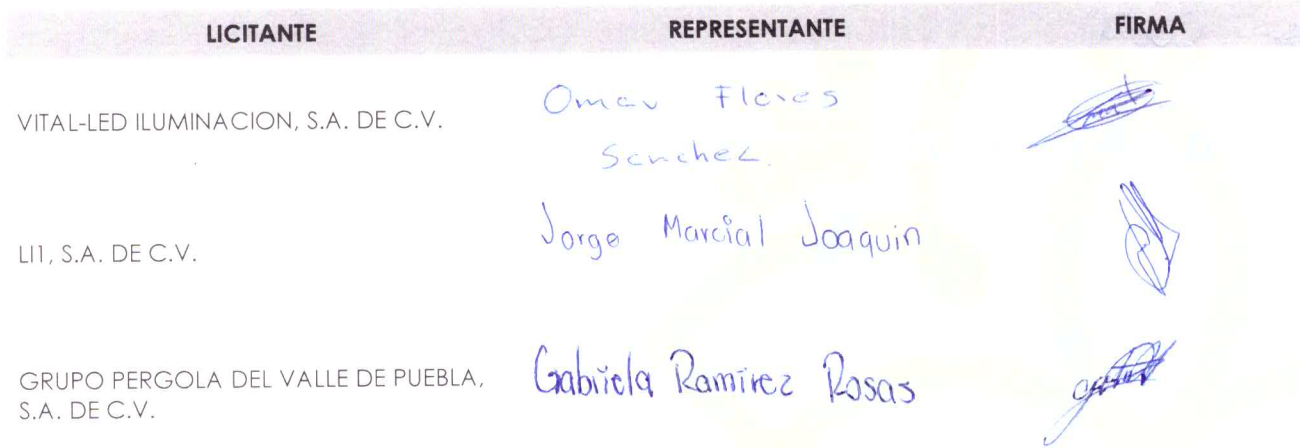 LICITANTE REPRESENTANTE FIRMA
VITAL-LED ILUMINACION, S.A. DE C.V. Omar Flores
Sanchez.
LI1, S.A. DE C.V. Jorge Marcial Joaquin
GRUPO PERGOLA DEL VALLE DE PUEBLA, Gabriela Ramirez Rosas
S.A. DE C.V.